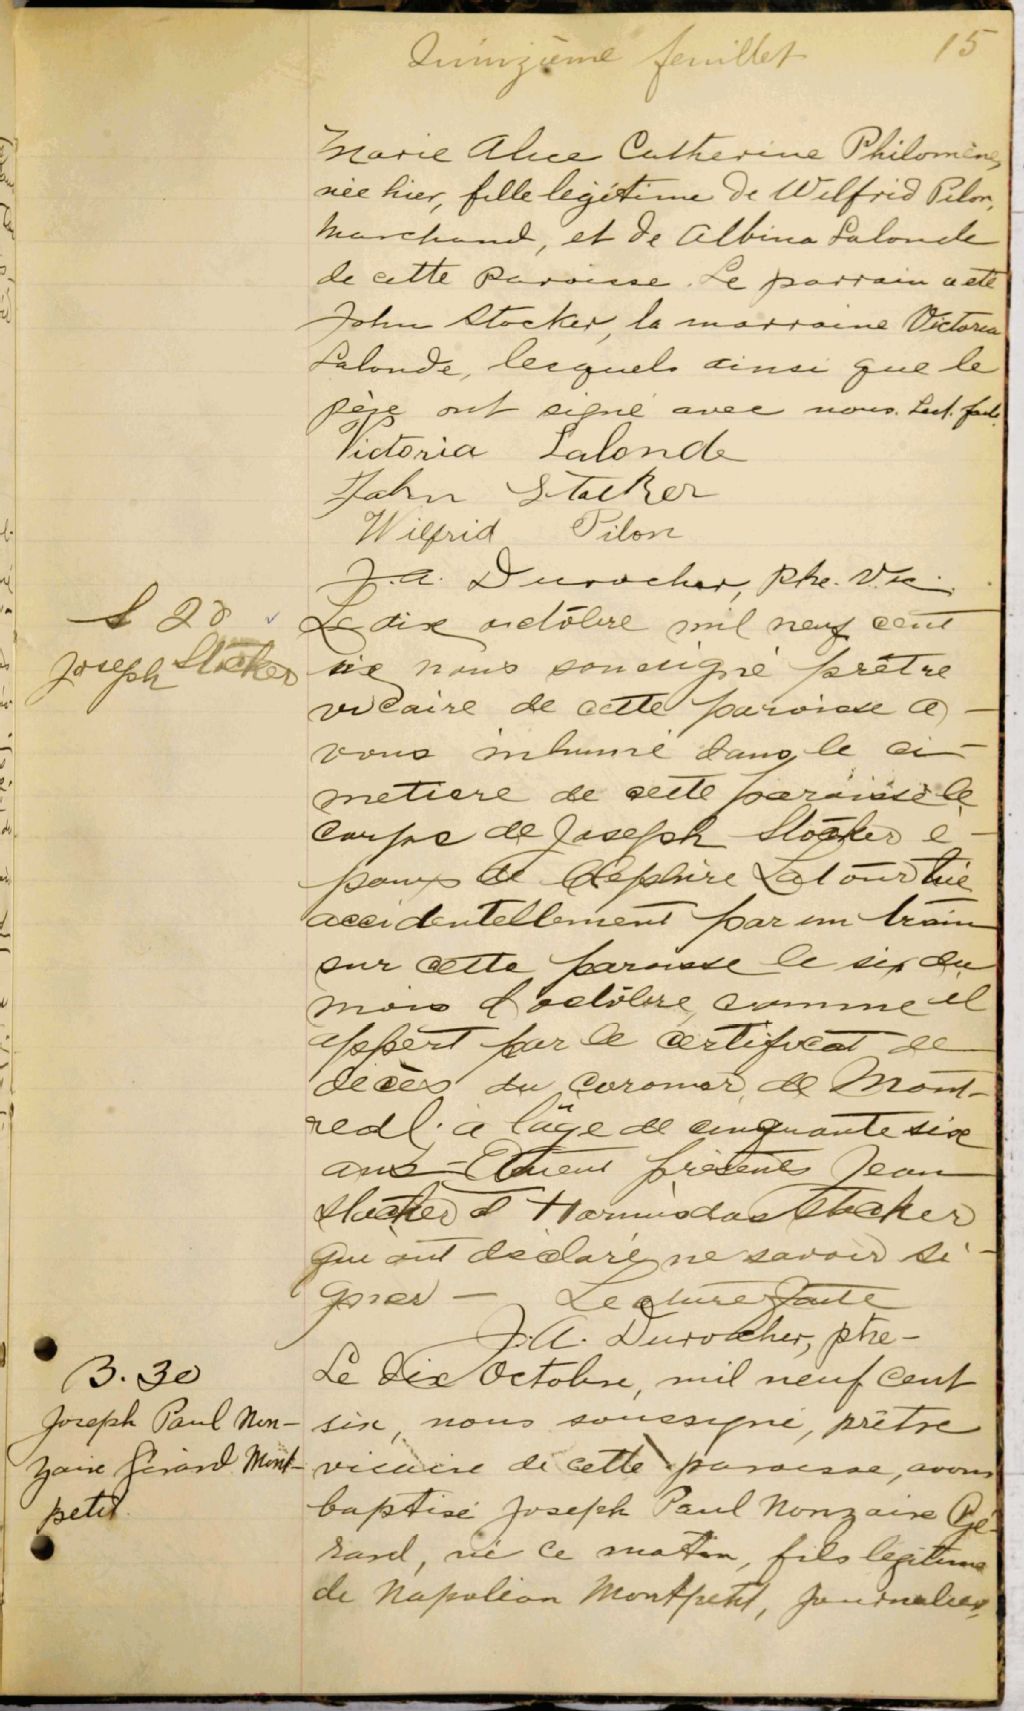 Quinzième feuillet 15
Marie Alice Catherine Philomène,
née hier, fille légitime de Wilfrid Pilon,
marchand, et de Albina Lalonde
de cette paroisse. Le parrain a été
John Stocker, la marraine Victoria
Lalonde, lesquels ainsi que le
père ont signé avec nous. Lect. faite.
Victoria Lalonde
John Stocker
Wilfrid Pilon
J. A. Durocher, ptre. Vic.
S 28
Joseph Stocker
Le dix octobre mil neuf cent
six nous soussigné prêtre
vicaire de cette paroisse a -
vons inhumé dans le ci -
metiere de cette paroisse le
corps de Joseph Stocker é -
poux de Latour tué
accidentellement par un train
sur cette paroisse le six du
mois d'octobre, comme il
appert par le certificat de
décès du coroner de Mont-
real. à l'âge de cinquante six
ans - Etaient présents Jean
Stocker & Hormisdas Stocker
qui ont déclaré ne savoir si -
gner - Lecture faite
J. A. Durocher, ptre -
B. 30
Joseph Paul Non-
zaire Gérard Mont-
petit
Le dix Octobre, mil neuf cent
six, nous soussigné, prêtre
vicaire de cette paroisse, avons
baptisé Joseph Paul Nonzaire Gé-
rard, né ce matin, fils légitime
de Napoléon Montpetit, journalier,